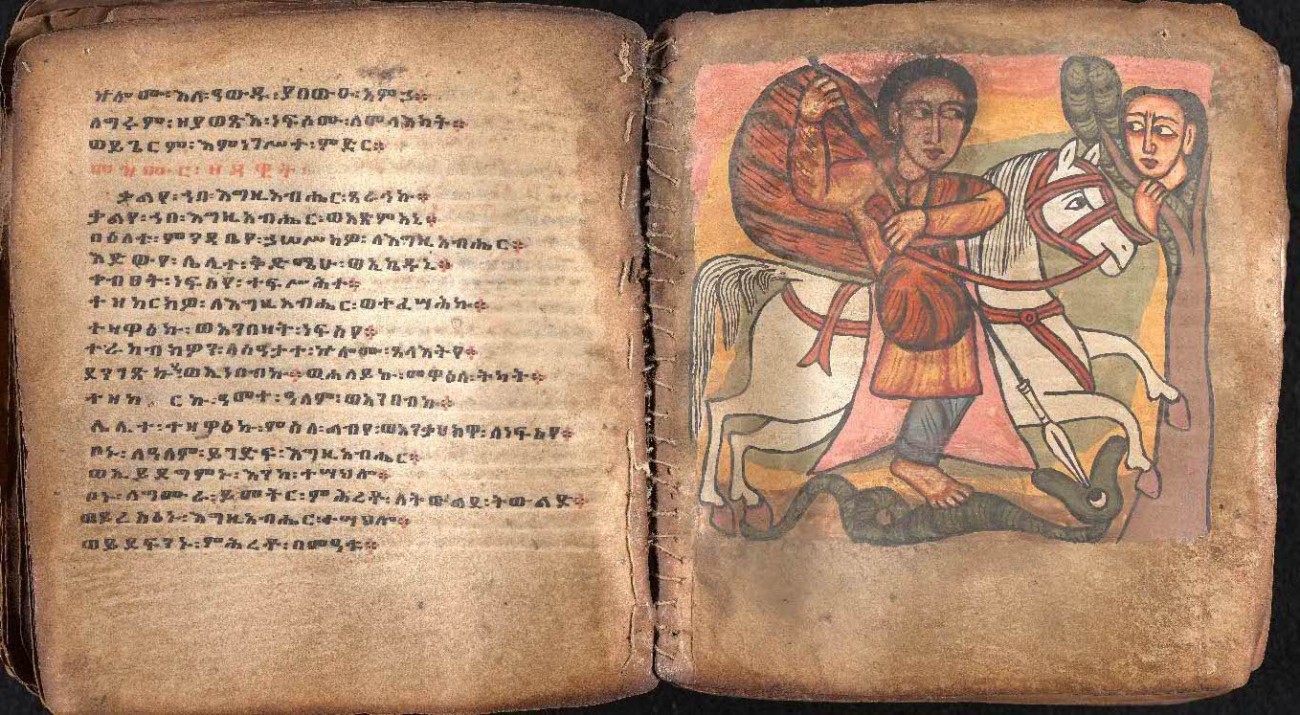 ኵሎሙ፡እለ፡ዓውዱ፡ያበውዑ፡አምኃ።
ለግሩም፡ዘያወጽእ፡ነፍሶሙ፡ለመላእክት።
ወይጌርም፡እምነገሥተ፡ምድር።
መዝሙር፡ዘዳዊት፡
ቃልየ፡ኀበ፡እግዚአብሔር፡ጸራኅኩ።
ቃልየ፡ኀበ፡እግዚአብሔር፡ወአጽምአኒ።
በዕለተ፡ምንዳቤየ፡ኃሠሥክዎ፡ለእግዚአብሔር።
እደውየ፡ሌሊተ፡ቅድሜሁ፡ወኢኬዱኒ።
ነፍስየ፡ተፍሥሕተ።
ተዘከርክዎ፡ለእግዚአብሔር፡ወተፈሣሕኩ።
ተዛዋዕኩ፡ወአንበዘት፡ነፍስየ።
ተራከብክዎን፡ለሰዓታተ፡ኵሎሙ፡ጸላእትየ።
ደንገጽኩሂ፡ወኢነበብኩ።ወሐለይኩ፡መዋዕለ፡ትካት።
ተዘከርኩ፡ዓመተ፡ዓለም፡ወአንበብኩ።
ሌሊተ፡ተዛዋዕኩ፡ምስለ፡ልብየ፡ወአንቃህክዋ፡ለነፍስየ።
ቦኑ፡ለዓለም፡ይገድፍ፡እግዚአብሔር።
ወኢይደግምኑ፡እንከ፡ተሣህሎ።
ቦኑ፡ለግሙራ፡ይመትር፡ምሕረቶ፡ለትውልደ፡ትውልድ።
ወይረስዕኑ፡እግዚአብሔር፡ተሣህሎ።
ወይደፍንኑ፡ምሕረቶ፡በመዓቱ።